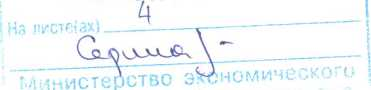 На листе(ах) 4
Министерство экономического